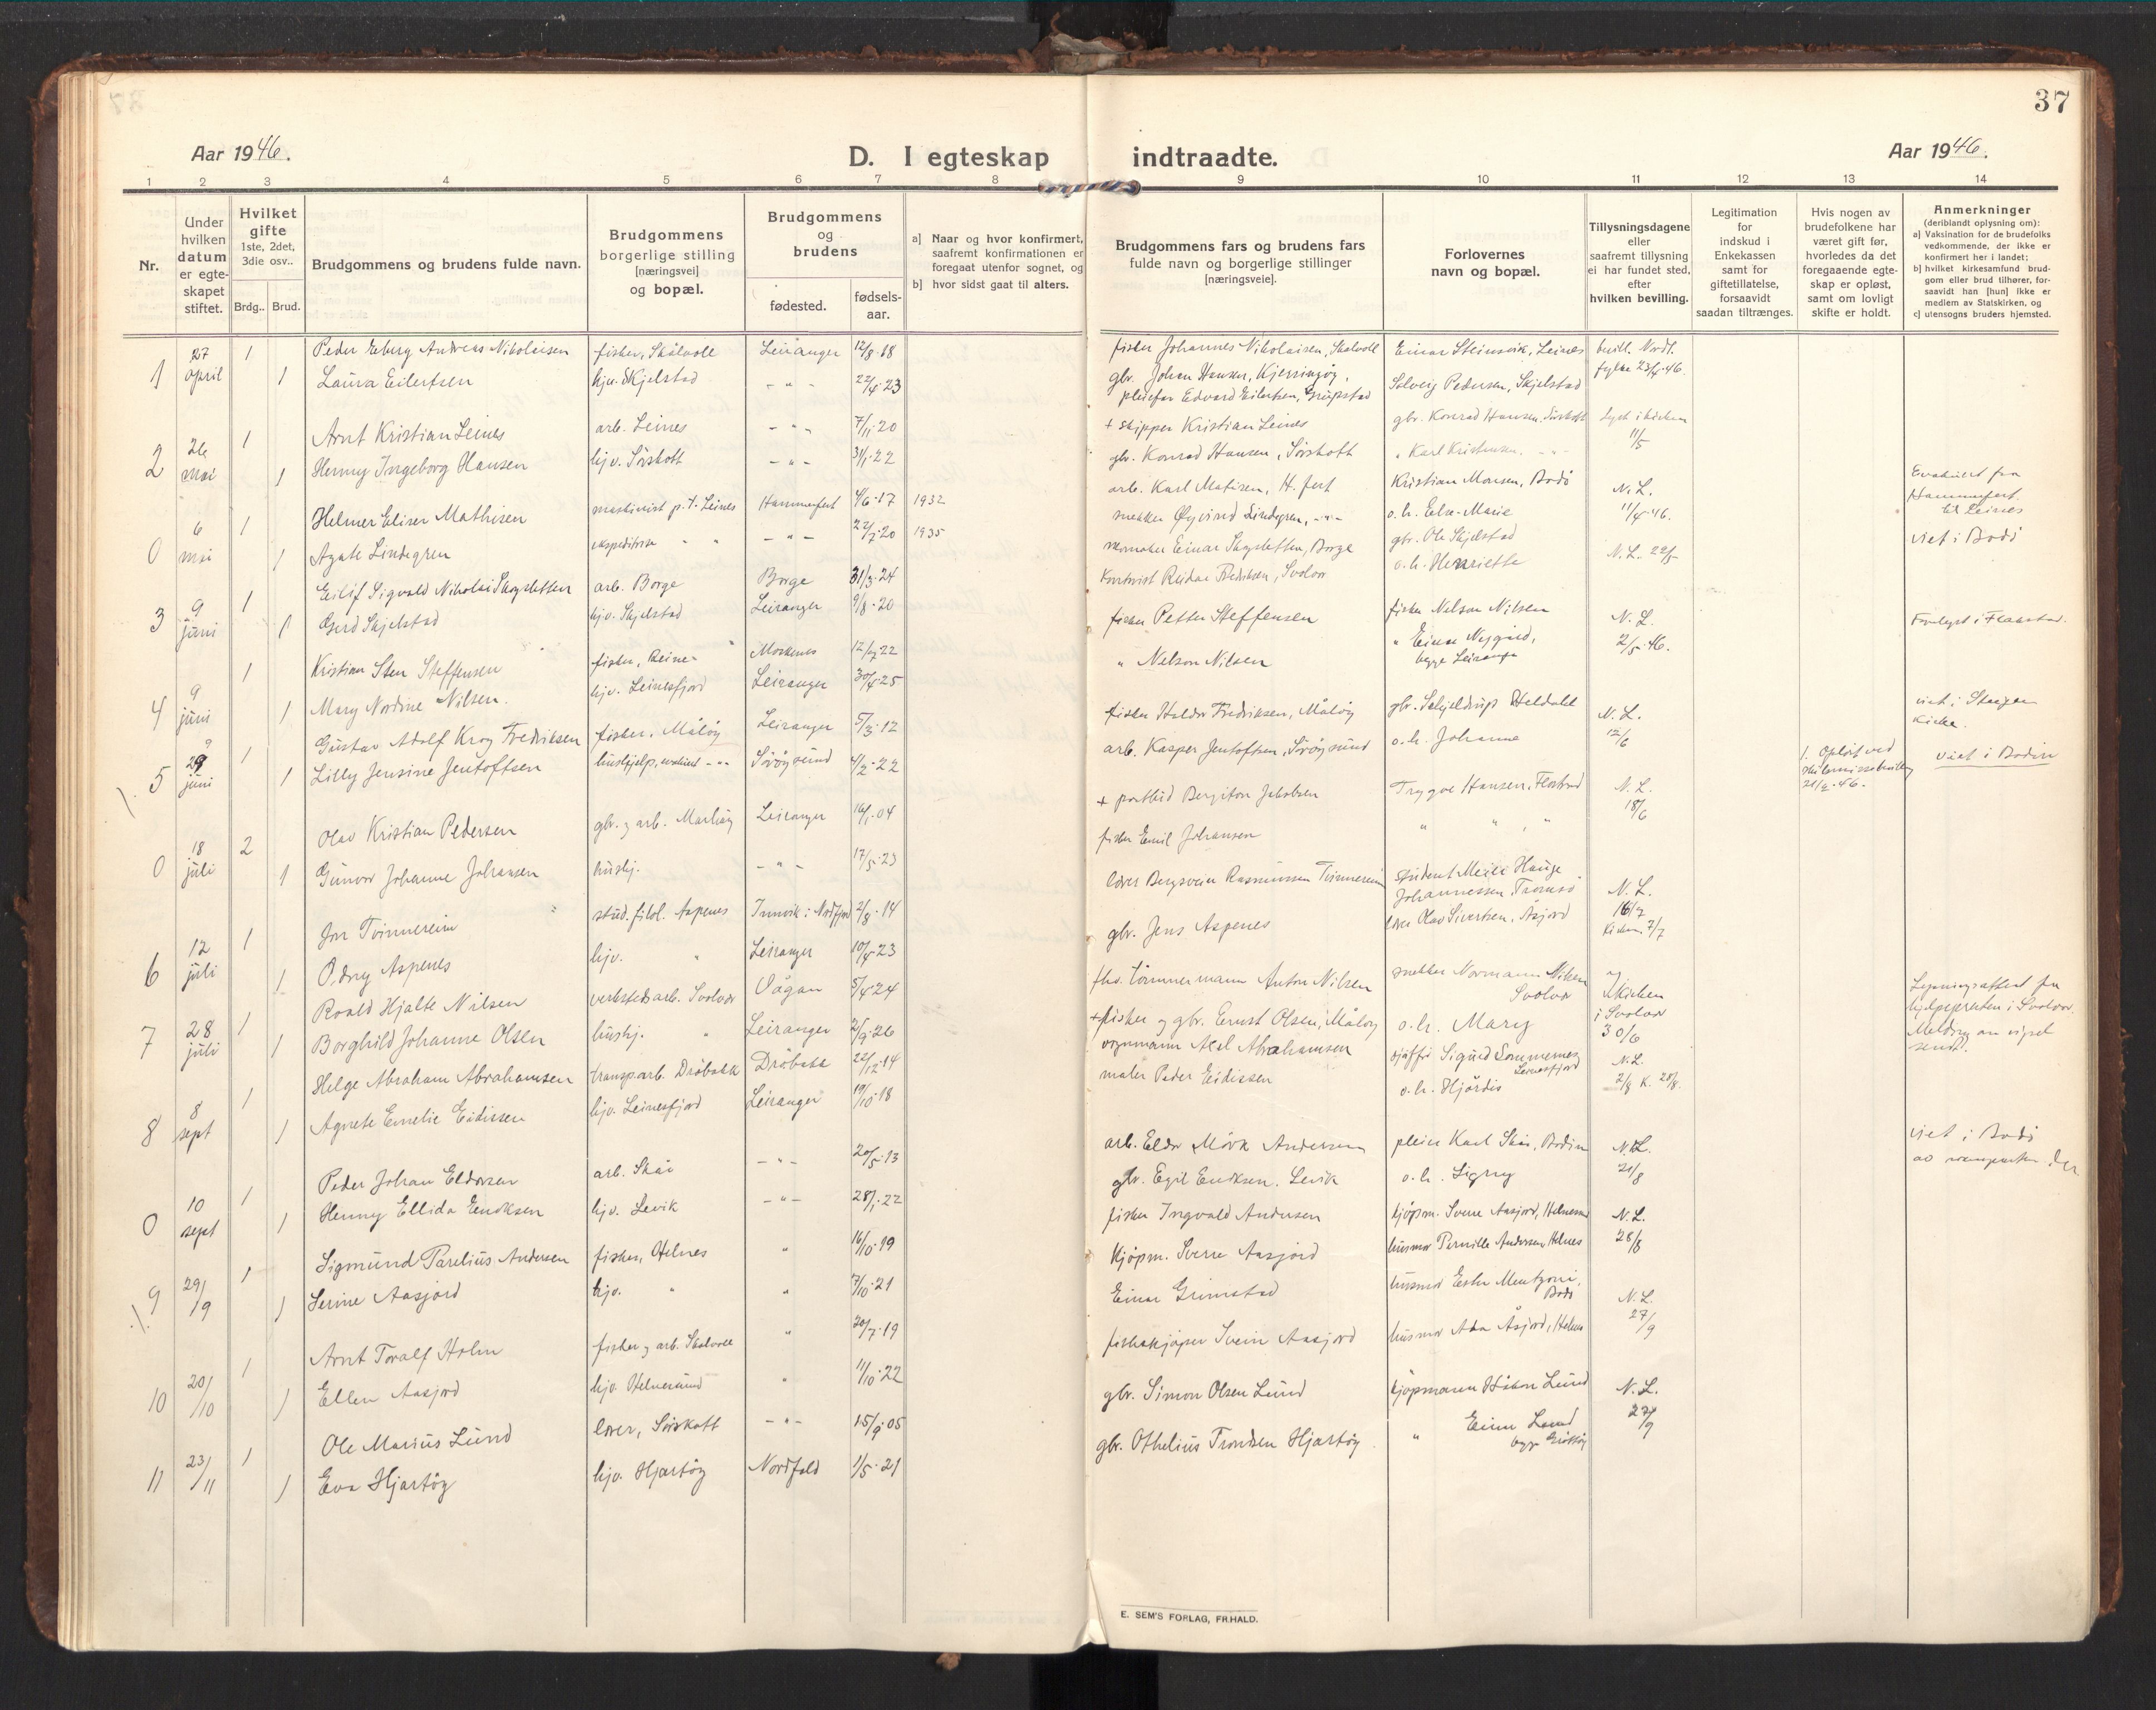 37
Aar 1946.
D. I egteskap indtraadte.
Aar 1946.
1 2 3 4 5 6 7 8 9 10 11 12 13 14
Nr.
Under hvilken datum er egte-skapet stiftet.
Hvilket gifte 1ste, 2det, 3die osv..
Brdg.. Brud.
Brudgommens og brudens fulde navn.
Brudgommens borgerlige stilling [næringsvei] og bopæl.
Brudgommens og brudens
fødested. fødsels-aar.
a] Naar og hvor konfirmert, saafremt konfirmationen er foregaat utenfor sognet, og
b] hvor sidst gaat til alters.
Brudgommens fars og brudens fars fulde navn og borgerlige stillinger [næringsveie].
Forlovernes navn og bopæl.
Tillysningsdagene eller saafremt tillysning ei har fundet sted, efter hvilken bevilling.
Legitimation for indskud i Enkekassen samt for giftetillatelse, forsaavidt saadan tiltrænges.
Hvis nogen av brudefolkene har været gift før, hvorledes da det foregaaende egte-skap er opløst, samt om lovligt skifte er holdt.
Anmerkninger (deriblandt oplysning om):
a] Vaksination for de brudefolks vedkommende, der ikke er konfirmert her i landet;
b] hvilket kirkesamfund brud-gom eller brud tilhører, for-saavidt han [hun] ikke er medlem av Statskirken, og
c] utensogns bruders hjemsted.
1 27 april 1 Peder Eberg Andreas Nikolaisen fisker, Skålvoll Leiranger 12/8-18 fisker Johannes Nikolaisen, Skålvoll Einar Steinsvik, Leines bevill. Nordl. fylke 23/4-46.
1 Laura Eilertsen hjv. Skjelstad - " - 22/4-23 gbr. Johan Hansen, Kjerringøy, pleiefar Edvard Eilertsen, Solveig Pedersen, Skjelstad
2 26 mai 1 Arnt Kristian Leines arb. Leines - " - 7/11-20 + skipper Kristian Leines gbr. Konrad Hansen, Sørskott lyst i kirken 11/5
1 Henny Ingeborg Hansen hjv. Sørskott - " - 31/1-22 gbr. Konrad Hansen, Sørskott " Karl Kristensen. - " -
0 6 mai 1 Helmer Eliser Mathisen maskinist p.t. Leines Hammerfest 4/6-17 1932 arb. Karl Matisen, H.fest Kristian Monsen, Bodø N.L. 11/4-46. Evakuert fra Hammerfest til Leines
1 Agate Lindegren ekspeditrise " " - " - 22/7-20 1935 snekker Øyvind Lindegren, - " - o.h. Else-Marie viet i Bodø
3 9 juni 1 Eilif Sigvald Nikolai Skogsletten arb. Borge Borge 31/3-24 skomaker Einar Skogsletten, Borge gbr. Ole Skjelstad N.L. 22/5
1 Gerd Skjelstad hjv. Skjelstad Leiranger 9/8-20 Reidar Fredriksen, Svolvær o.h. Henriette
4 9 juni 1 Kristian Sten Steffensen fisker, Reine Moskenes 12/7-22 fisker Petter Steffensen fisker Nelson Nilsen N.L. 2/5-46.
1 Mary Nordine Nilsen. hjv. Leinesfjord Leiranger 30/4-25 " Nelson Nilsen " Einar Nygård, begge Leiranger
5 29 juni 1 Gustav Adolf Krog Fredriksen fisker, Måløy Leiranger 5/3-12 fisker Haldor Fredriksen, Måløy gbr. Schjeldrup Heldahl N.L. 12/6 viet i Steigen Kirke.
1 Lilly Jensine Jentoftsen hushjelp, - " - Sørøysund 4/2-22 arb. Kasper Jentoftsen, Sørøysund o.h. Johanne
0 18 juli 2 Olav Kristian Pedersen gbr. og arb. Leiranger 16/1-04 + postbud Bergiton Jakobsen Trygve Hansen, N.L. 18/6 1. Opløst ved 21/2-46. viet i Bodin
1 Gunvor Johanne Johansen hushj. - " - 17/5-23 fisker Emil Johansen " " , "
6 12 juli 1 Jon Tvinnereim stud. filol. Aspenes Innvik i Nordfjord 2/8-14 lærer Bergsvein Rasmussen Tvinnereim student Hauge Johannessen, Tromsø N.L. 16/7
1 Odny Aspenes hjv. " Leiranger 10/4-23 gbr. Jens Aspenes lærer Olav Sivertsen, Åsjord Kirken 7/7
7 28 juli 1 Roald Hjalte Nilsen verkstedsarb. Svolvær Vågan 5/4 24 fhv. tømmermann Anton Nilsen snekker Normann Nilsen Svolvær kirken i Svolvær 30/6 Lysningsattest fra hjelpepresten i Svolvær. Melding om vigsel sendt.
1 Borghild Johanne Olsen hushj. " Leiranger 2/9-26 + fisker og gbr. Ernst Olsen, Måløy o.h. Mary
8 8 sept 1 Helge Abraham Abrahamsen transp.arb. Drøbakk Drøbakk 22/12-14 vognmann Axel Abrahamsen sjåffør Sigurd Sommernes Leinesfjord N.L. 2/8 K. 28/8.
1 Agnete Emelie Eidissen hjv. Leinesfjord Leiranger 19/10-18 maler Peder Eidissen o.h. Hjørdis
0 10 sept 1 Peder Johan Eldorsen arb. Skåi - " - 20/5-13 arb. Eldor Mörk Andersen Karl Skåi, Bodin N.L. 21/8 viet i Bodø
1 Henny Ellida Eriksen hjv. Levik - " - 28/1-22 gbr. Egil Eriksen. Levik o.h. Signy
9 29/9 1 Sigmund Parelius Andersen fisker, Helnes " 16/10-19 fisker Ingvald Andersen kjøpm. Sverre Aasjord, Helnessund N.L. 28/8
1 Serine Aasjord hjv. " " 7/10-21 Kjøpm. Sverre Aasjord husmor Pernille Andersen, Helnes
10 20/10 1 Arnt Toralf Holm fisker og arb. Skålvoll " 20/7-19 Einar Grimstad husmor Ester Mentzoni, Bodø N.L. 27/9
1 Ellen Aasjord hjv. Helnessund " 11/10-22 fiskekjøper Svein Aasjord husmor Åsjord, Helnes
11 23/11 1 Ole Marius Lund lærer, Sørskott - " - 15/9-05 gbr. Simon Olsen Lund kjøpmann Håkon Lund N.L. 27/9
1 Eva Hjartøy hjv. Hjartøy Nordfold 1/5-21 gbr. Othelius Trondsen Hjartøy " Einar Lund
E. SEM'S FORLAG, FR.HALD.